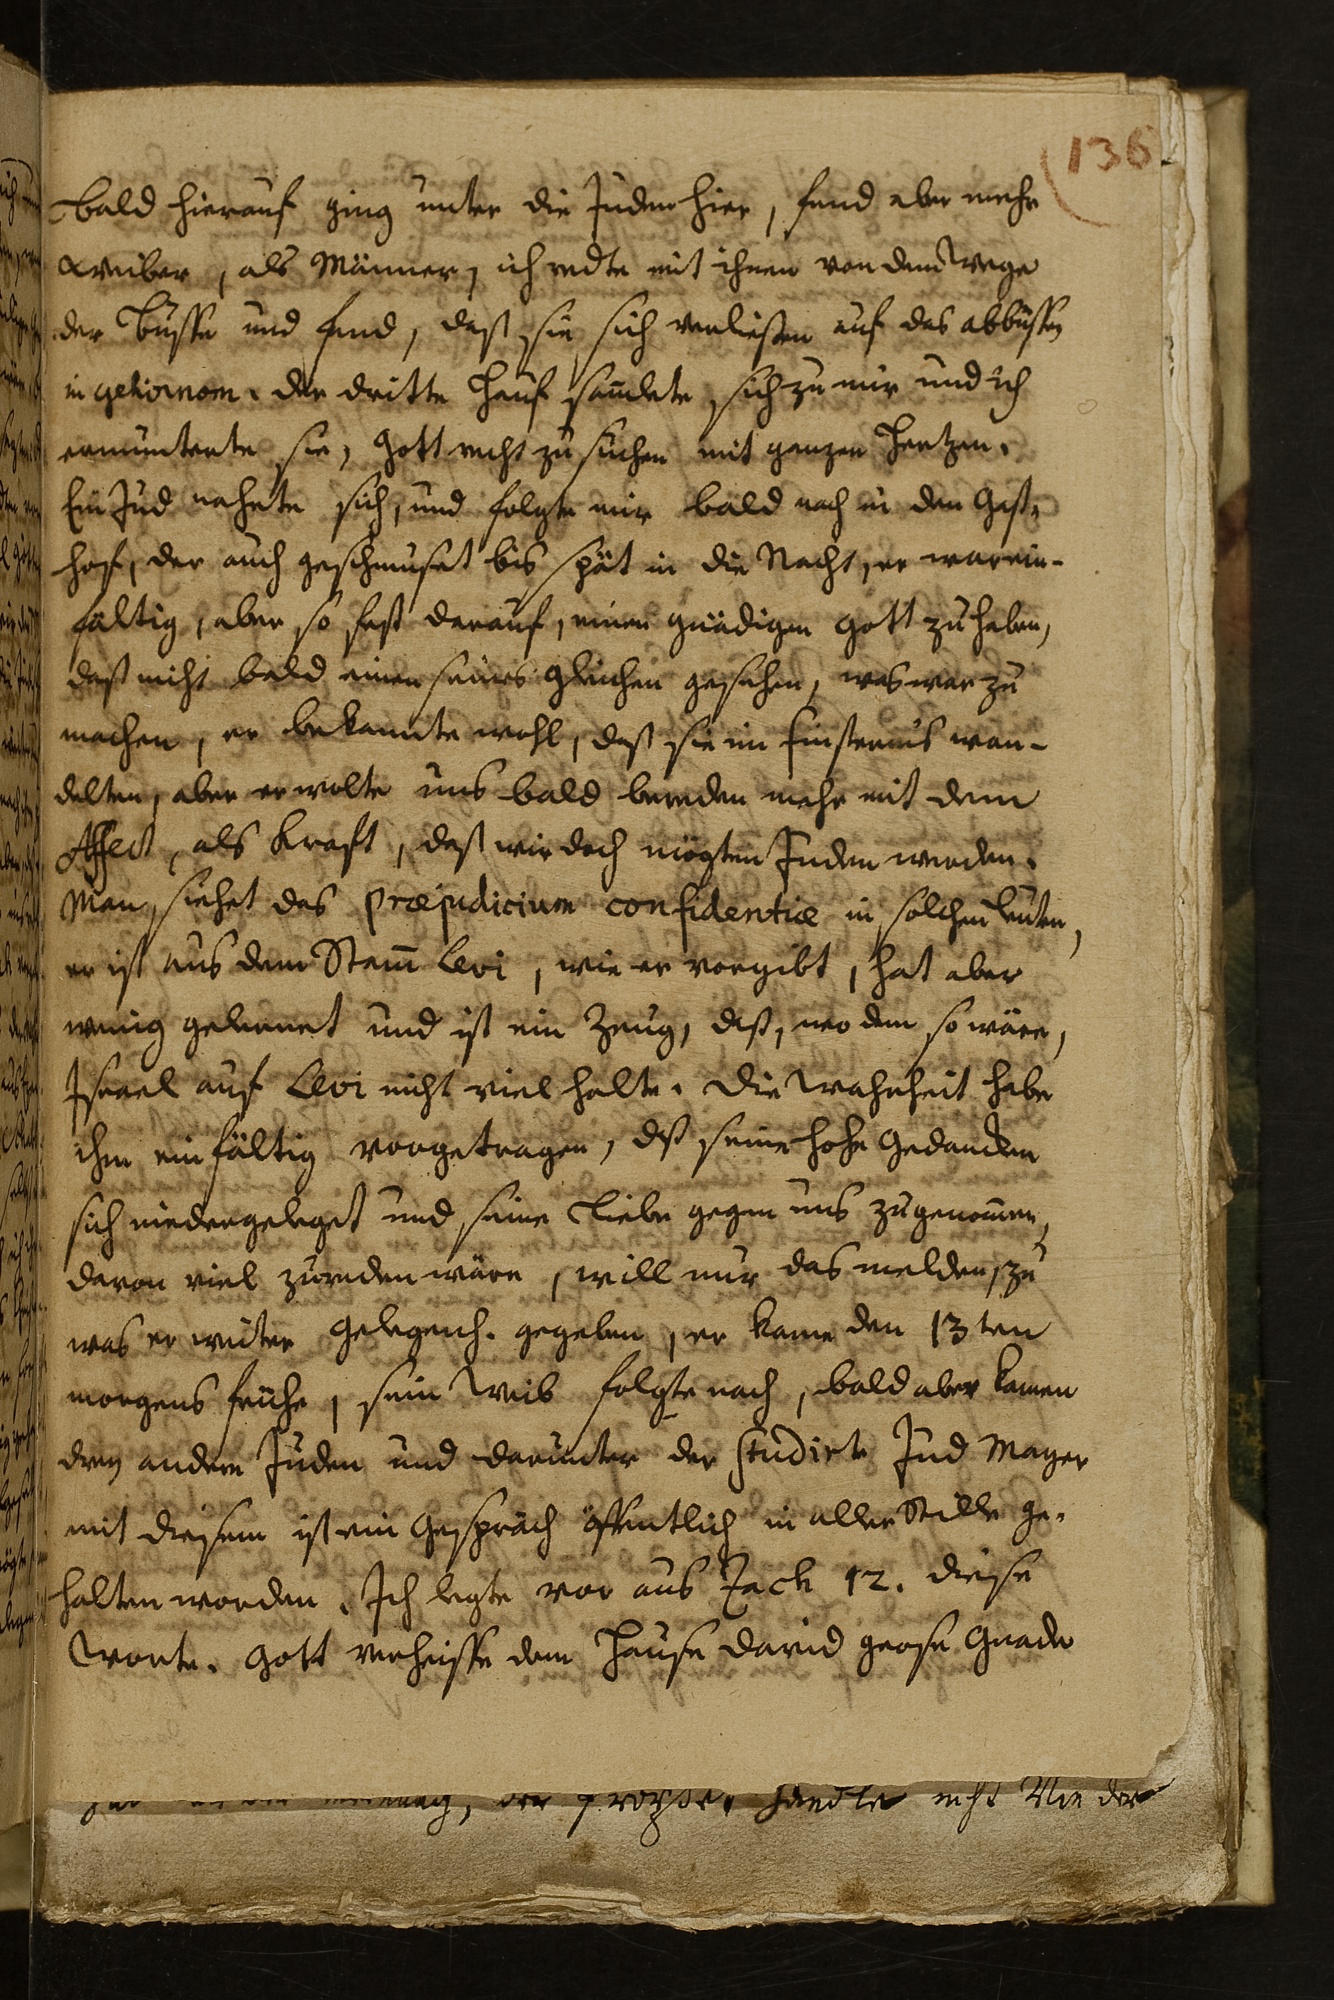 136
Bald hierauf ging unter die Juden hier, fand aber mehr
Weiber, als Männer, ich redte mit ihnen von dem Wege
der Busse und fand, daß sie sich verließen auf das abbüssen
in gehinom. der dritte Hauf samlete sich zu mir und ich
ermunterte sie, Gott recht zu suchen mit ganzen Hertzen.
Ein Jud nahete sich, und folgte mir bald nach in den Gast-
hof, der auch geschmuset bis spät in die Nacht, er war ein-
fältig, aber so fest darauf, einen gnädigen Gott zu haben,
daß nicht bald einen seines gleichen gesehen, was war zu
machen, er bekannte wohl, daß sie im Finsternis wan-
delten, aber er wolte uns bald bereden mehr mit dem
Affect, als Kraft, daß wir doch mögten Juden werden.
Man siehet das præjudicium confidentiæ in solchen Leuten,
er ist aus dem Stam̅ Levi, wie er vorgibt, hat aber
wenig gelernet und ist ein Zeug, daß, wo dem so wäre,
Israel auf Levi nicht viel halte. Die Wahrheit habe
ihm einfältig vorgetragen, daß seine hohe Gedancken
sich niedergeleget und seine Liebe gegen uns zugenom̅en,
davon viel zu reden wäre, will nur das melden, zu
was er weiter Gelegenh. gegeben, er kame den 13ten
morgens frühe, sein Weib folgte nach, bald aber kamen
drey andere Juden und darunter der studirte Jud Mayer
mit diesem ist ein Gespräch öffentlich in aller Stille ge-
halten worden. Ich legte vor aus Zach 12. diese
Worte. Gott verheisse dem Hause David grose Gnade